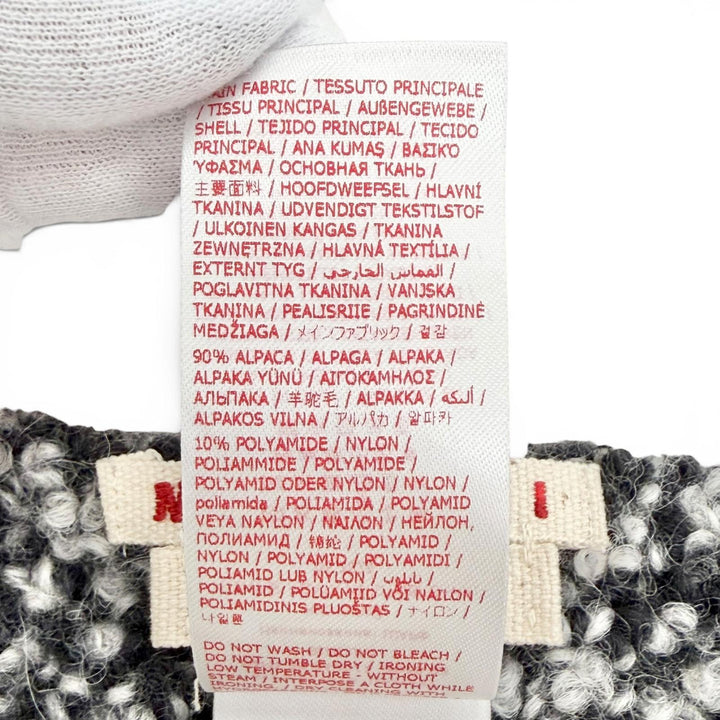 FABRIC / TESSUTO PRINCIPALE
/ TISSU PRINCIPAL / AUßENGEWEBE /
SHELL / TEJIDO PRINCIPAL / TECIDO
PRINCIPAL / ANA KUMAŞ / ΒΑΣΙΚΌ
ΎΦΑΣΜΑ / ОСНОВНАЯ ТКАНЬ /
主要面料 / HOOFDWEEFSEL / HLAVNÍ
TKANINA / UDVENDIGT TEKSTILSTOF
/ ULKOINEN KANGAS / TKANINA
ZEWNĘTRZNA / HLAVNÁ TEXTÍLIA /
EXTERNT TYG / القماس الخارجي /
POGLAVITNA TKANINA / VANJSKA
TKANINA / PEALISRIIE / PAGRINDINĖ
MEDŽIAGA / メインファブリック / 겉감
90% ALPACA / ALPAGA / ALPAKA /
ALPAKA YÜNÜ / ΑΙΓΟΚΆΜΗΛΟΣ /
АЛЬПАКА / 羊驼毛 / ALPAKKA / ألبكة /
ALPAKOS VILNA / アルパカ / 알파카
10% POLYAMIDE / NYLON /
POLIAMMIDE / POLYAMIDE /
POLYAMID ODER NYLON / NYLON /
poliamida / POLIAMIDA / POLYAMID
VEYA NAYLON / ΝΆΙΛΟΝ / НЕЙЛОН,
ПОЛИАМИД / 锦纶 / POLYAMID /
NYLON / POLYAMID / POLYAMIDI /
POLIAMID LUB NYLON / نايلون /
POLYAMID / POLÜAMIID VÕI NAILON /
POLIAMIDINIS PLUOŠTAS / ナイロン /
나일론
DO NOT WASH / DO NOT BLEACH /
DO NOT TUMBLE DRY / IRONING
LOW TEMPERATURE - WITHOUT
STEAM / INTERPOSE A CLOTH WHILE
IRONING / DRY CLEANING WITH